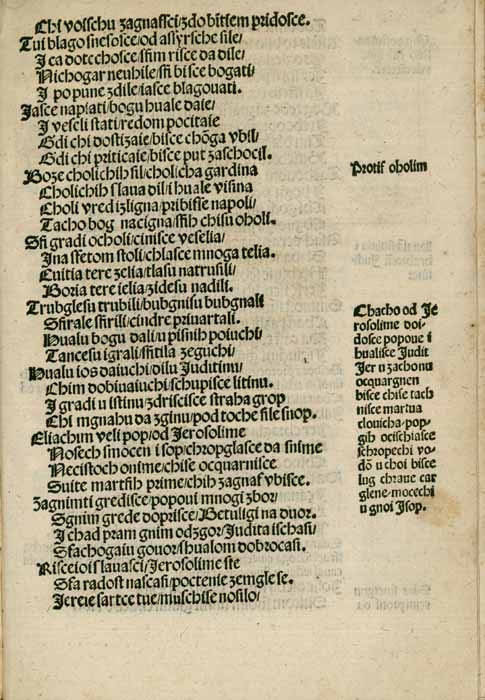 Chi voischu zagnaſſci/zdo bitiem pridosce.
Tui blago sneſoſce/od aſſyrſche ſile/
I ca dotechoſce/ſfim riſce da dile/
Nichogar neuhile/ſfi biſce bogati/
I po pune zdile/iaſce blagouati.
Jaſce naplati/bogu huale daie/
I veſeli ſtati/redom pocitaie
Gdi chi doſtizaie/biſce chõga vbil/
Gdi chi priticaie/biſce put zaſchocil.
Boze cholichih ſil/cholicha gardina
Cholichih ſlaua dil/i huale viſina
Choli vred izligna/pribiſſe napoli/
Tacho bog nacigna/ſfih chi ſu oholi.
Sfi gradi ocholi/ciniſce veſelia/
I na ſfetom ſtoli/chlaſce mnoga telia.
Cuitia tere zelia/tlaſu natruſili/
Boria tere ielia/zideſu nadili.
Trubgleſu trubili/bubgniſu bubgnali
Sfirale ſfirili/cindre priuartali.
Hualu bogu dali/u piſnih poiuchi/
Tanceſu igrali/ſfitila zeguchi/
Hualu ios daiuchi/dilu Juditinu/
Chim dobiuaiuchi/ſchupiſce litinu.
I gradi u iſtinu/zdriſciſce ſtraha grop
Chi mgnahu da zginu/pod toche file ſnop.
Eliachim veli pop/od Jeroſolime
Noſech ſmocen i ſop/chropglaſce da ſnime
Neciſtoch onime/chiſe ocquarniſce
Suite martſih prime/chih zagnaſ vbiſce.
Zagnimti grediſce/popoui mnogi zbor/
Sgnim grede dopriſce/Betuligi na duor.
I chad pram gnim odzgor/Judita iſchaſi/
Sfachogaiu gouor/ſhualom dobrocaſi.
Riſceioi ſlauaſci/Jeroſolime ſte
Sfa radoſt naſcaſi/poctenie zemgle ſe.
Jereie ſartce tue/muſchiſe noſilo/
Protif oholim
Chacho od Je
roſolime doi⸗
doſce popoue i
hualiſce Judit
Jer u zachonu
ocquargnen
biſce chiſe tach
niſce martua
clouicha/pop⸗
gih ociſchiaſce
ſchropechi vo⸗
dõ u choi biſce
lug chraue car
glene/mocechi
u gnoi Jſop.